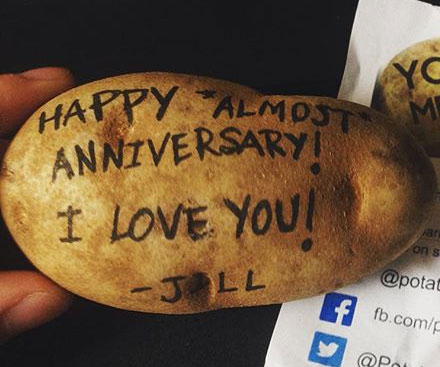 HAPPY "ALMOST"
ANNIVERSARY!
I LOVE YOU!
-JILL
YO
M
on s
@potat
fb.com/p
@Pot